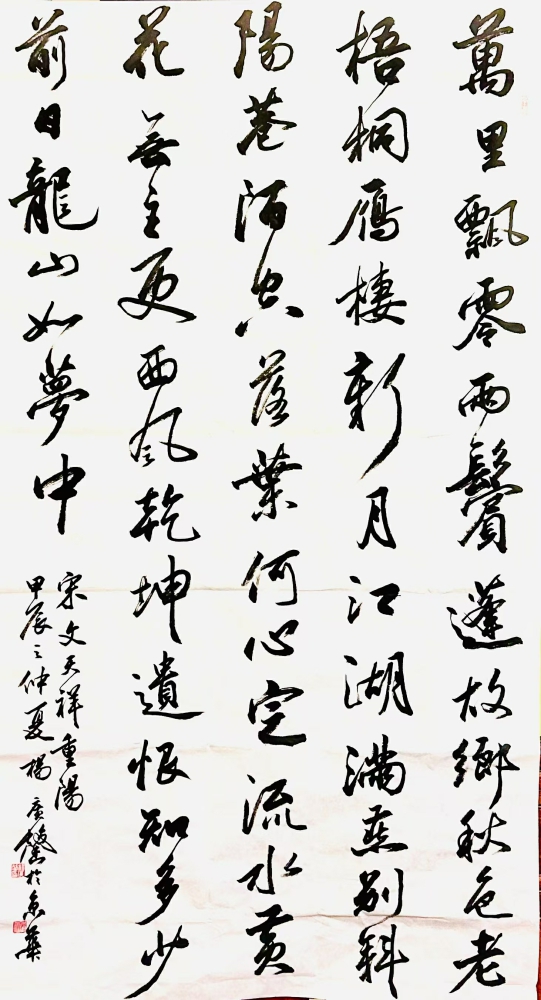 萬里飄零兩鬢蓬故鄉秋色老
梧桐雁棲新月江湖滿燕別斜
陽巷陌空落葉何心定流水黃
花無主更西風乾坤遺恨知多少
前日龍山如夢中
宋文天祥重陽
甲辰之仲夏楊廣於京華